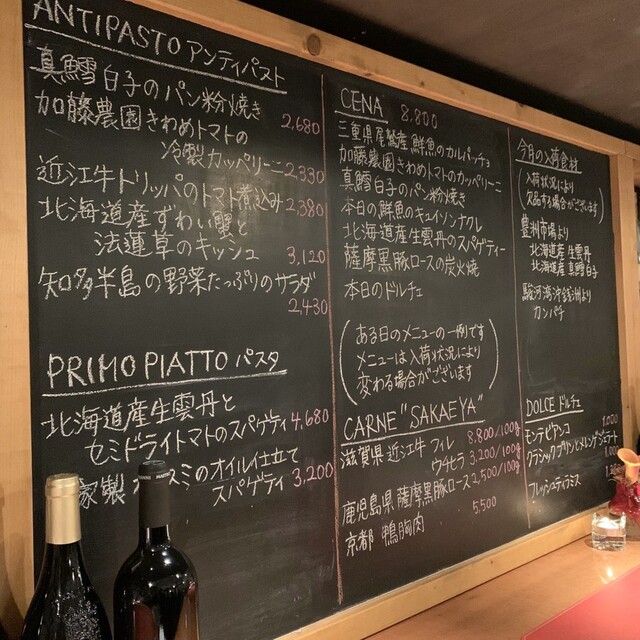 ANTIPASTO アンティパスト
真鱈白子のパン粉焼き
2,680
加藤農園きわめトマトの
冷製カッペリーニ 2,330
近江牛トリッパのトマト煮込み 2,380
北海道産ずわい蟹と
法蓮草のキッシュ 3,120
知多半島の野菜たっぷりのサラダ
2,430
PRIMO PIATTO パスタ
北海道産生雲丹と
セミドライトマトのスパゲティ 4,680
家製 スミのオイル仕立て
スパゲティ 3,200
CENA 8.800
三重県尾鷲産鮮魚のカルパッチョ
加藤農園きわめトマトのカッペリーニ
真鱈白子のパン粉焼き
本日の鮮魚のキュイソンナクレ
北海道産生雲丹のスパゲティー
薩摩黒豚ロースの炭火焼
本日のドルチェ
(ある日のメニューの一例です
メニューは入荷状況により
変わる場合がございます)
CARNE "SAKAEYA"
滋賀県 近江牛 フィレ 8,800/100g
ウチヒラ 3,200/100g
鹿児島県 薩摩黒豚ロース 2,500/100g
京都 鴨胸肉 5,500
今月の入荷食材
(入荷状況により
欠品する場合がございます)
豊洲市場より
北海道産 生雲丹
北海道産 真鱈白子
駿河湾沖 より
カンパチ
DOLCE ドルチェ
モンテビアンコ
クラシックプリンとメレンゲジェラート
フレッシュティラミス